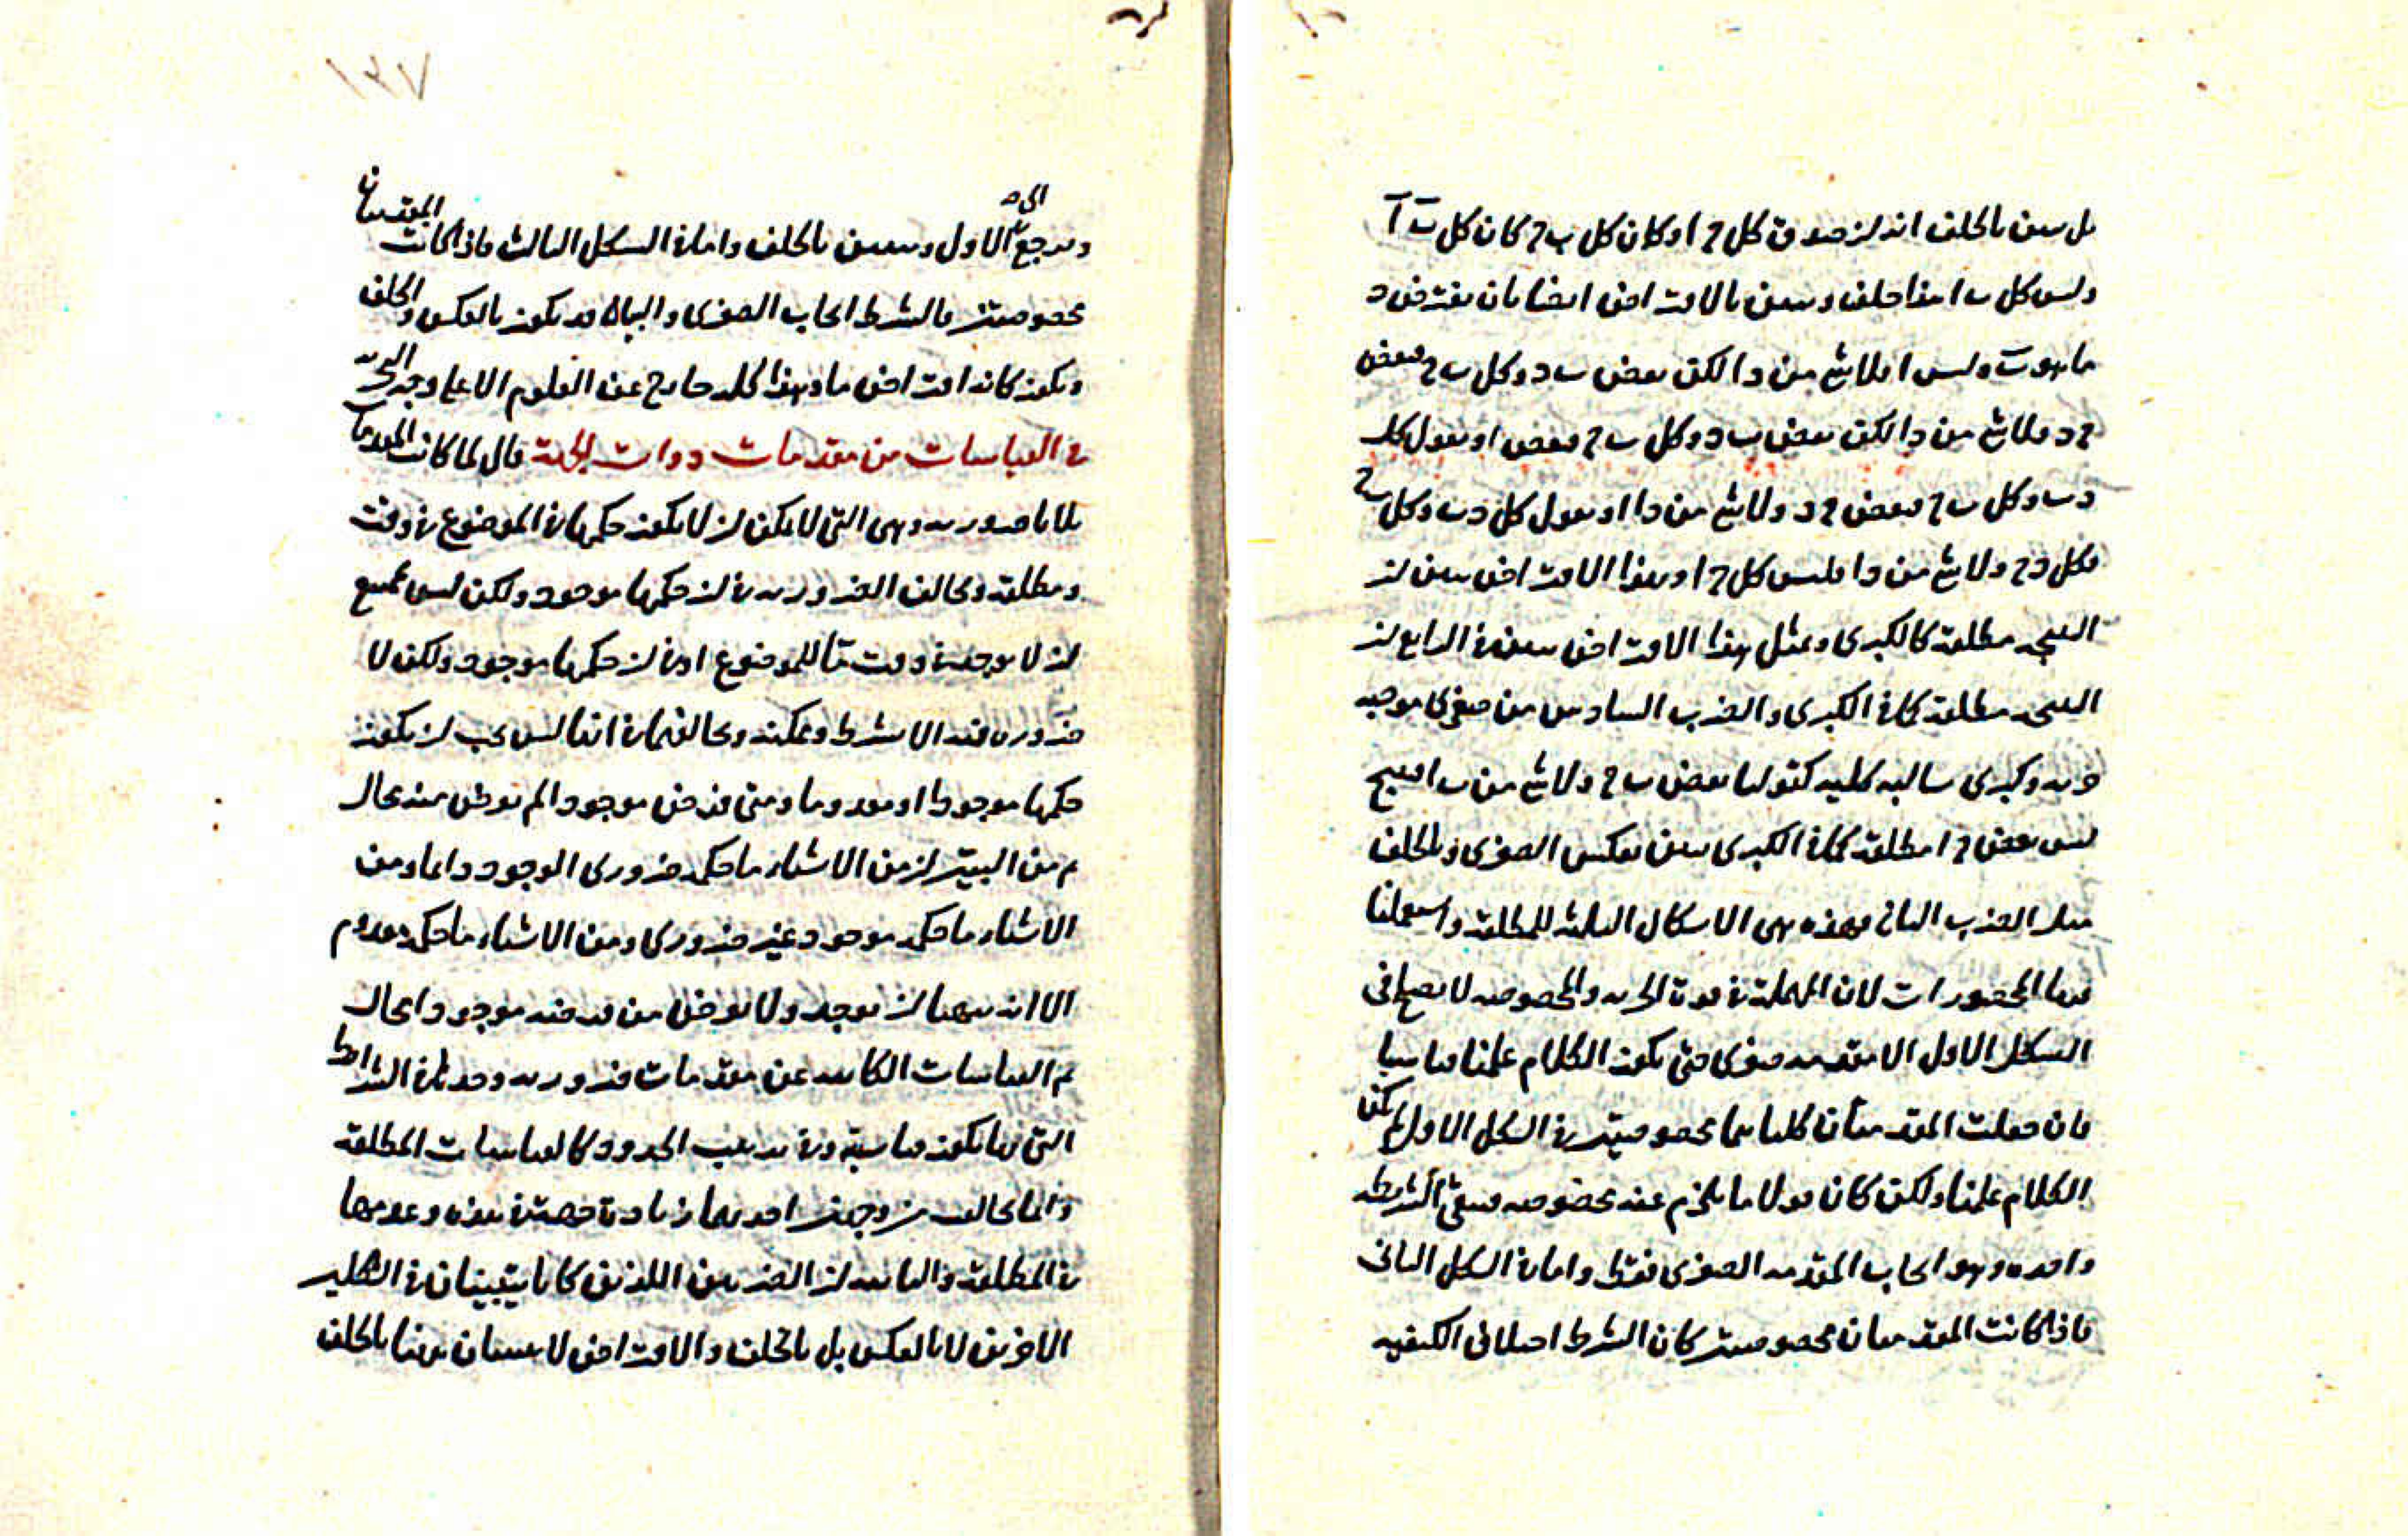 بل يبين بالخلف انه ان صدق كل ج ا وكان كل ب ج كان كل ب ا
وليس كل ب ا هذا خلف ويبين بالافتراض ايضا بان نفترض د
ما هو ب وليس ا فلا شئ من د ا لكن بعض ب د وكل ب ج فبعض
ج د ولا شئ من د ا لكن بعض ب د وكل ب ج فبعض او نقول كل
د ب وكل ب ج فبعض ج د ولا شئ من د ا او نقول كل د ب وكل ب ج
فكل د ج ولا شئ من د ا فليس كل ج ا وبهذا الافتراض يبين ان
النتيجه مطلقة كالكبرى وبمثل هذا الافتراض يبين فى الرابع ان
النتيجه مطلقة كما فى الكبرى والضرب السادس من صغرى موجبه
جزيه وكبرى سالبه كليه كقولنا بعض ب ج ولا شئ من ب ا ينتج
ليس بعض ج ا مطلقة كما فى الكبرى يبين بعكس الصغرى وبالخلف
مثل الضرب الثانى فهذه هى الاشكال الثلثه للمطلقة واستعملنا
فيها المحصورات لان المهملة فى قوة الجزيه والمخصوصه لا تصلح فى
الشكل الاول الا مقدمه صغرى حتى يكون الكلام علميا قياسيا
فان جعلت المقدمتان كلتاهما مخصوصتين فى الشكل الاول لم يكن
الكلام علميا ولكن كان قولا ما يلزم عنه مخصوصه فيبقى الشريطه
واحده وهو ايجاب المقدمه الصغرى فقط واما فى الشكل الثانى
فاذا كانت المقدمتان مخصوصتين كان الشرط اختلافى الكيفيه
١٣٧
ويرجع الى الاول ويبين بالخلف واما فى الشكل الثالث فاذا كانت المقدمتان
مخصوصتين فالشرط ايجاب الصغرى والبيان قد يكون بالعكس والخلف
ويكون كانه افتراض ما وهذا كله خارج عن العلوم الا على وجه
فى القياسات من مقدمات ذوات الجهة قال لما كانت المقدمات
ثلاثا ضروريه وهى التى لا يمكن ان لا يكون حكمها فى الموضوع فى وقت
ومطلقة وتخالف الضروريه فى ان حكمها موجود ولكن ليس يمتنع
ان لا يوجد فى وقت ما للموضوع او فى ان حكمها موجود ولكن لا
ضرورة فيه الا بشرط وممكنه وتخالفهما فى انها ليس يجب ان يكون
حكمها موجودا او معدوما ومتى فرض موجودا لم يعرض منه محال
ثم من البين ان من الاشياء ما حكمه ضرورى الوجود دايما ومن
الاشياء ما حكمه موجود غير ضرورى ومن الاشياء ما حكمه معدوم
الا انه يتهيا ان يوجد ولا يعرض من فرضه موجودا محال
ثم القياسات الكاينه عن مقدمات ضروريه وحدها فى الشرايط
التى بها يكون قياسية وفى ترتيب الحدود كالقياسات المطلقة
وانما تخالف من وجهين احدهما زيادة خصت هذه وعدمها
فى المطلقة والثانيه ان الضربين اللذين كانا يتبينان فى الشكلين
الاخرين لا بالعكس بل بالخلف والافتراض لا يبينان هنا بالخلف